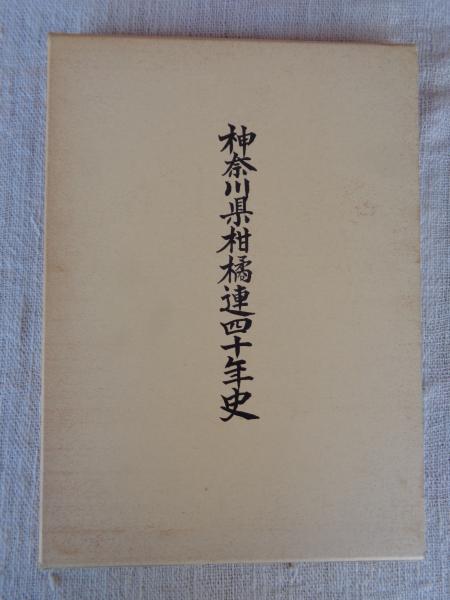 神奈川県柑橘連四十年史